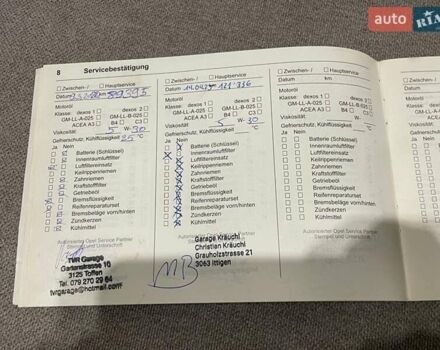 AUTO RIA
8 Servicebestätigung
☐ Zwischen- / ☐ Hauptservice
Datum
Motoröl
Klasse: dexos 1 ☐ dexos 2 ☐
GM-LL-A-025 ☐ GM-LL-B-025 ☐
ACEA A3 ☐ B4 ☐ C3 ☐
Viskosität: 5 W- 30
Gefrierschutz, Kühlflüssigkeit °C
Ja Nein
Batterie (Schlüssel)
Innenraumluftfilter
Luftfiltereinsatz
Keilrippenriemen
Zahnriemen
Kraftstofffilter
Getriebeöl
Bremsflüssigkeit
Reifenreparaturset
Bremsbeläge vorn/hinten
Zündkerzen
Kühlmittel
Autorisierter Opel Service Partner
Stempel und Unterschrift
TVR Garage
3125 Toffen
Tel. 079 270 29 64
tvrgarage@hotmail.com
☐ Zwischen- / ☐ Hauptservice
Datum
Motoröl
Klasse: dexos 1 ☐ dexos 2 ☐
GM-LL-A-025 ☐ GM-LL-B-025 ☐
ACEA A3 ☐ B4 ☐ C3 ☐
Viskosität: 5 W- 30
Gefrierschutz, Kühlflüssigkeit °C
Ja Nein
Batterie (Schlüssel)
Innenraumluftfilter
Luftfiltereinsatz
Keilrippenriemen
Zahnriemen
Kraftstofffilter
Getriebeöl
Bremsflüssigkeit
Reifenreparaturset
Bremsbeläge vorn/hinten
Zündkerzen
Kühlmittel
Garage Kräuchi
Christian Kräuchi
Grauholzstrasse 21
3063 Ittigen
☐ Zwischen- / ☐ Hauptservice
Datum km
Motoröl
Klasse: dexos 1 ☐ dexos 2 ☐
GM-LL-A-025 ☐ GM-LL-B-025 ☐
ACEA A3 ☐ B4 ☐ C3 ☐
Viskosität: W-
Gefrierschutz, Kühlflüssigkeit °C
Ja Nein
Batterie (Schlüssel)
Innenraumluftfilter
Luftfiltereinsatz
Keilrippenriemen
Zahnriemen
Kraftstofffilter
Getriebeöl
Bremsflüssigkeit
Reifenreparaturset
Bremsbeläge vorn/hinten
Zündkerzen
Kühlmittel
Autorisierter Opel Service Partner
Stempel und Unterschrift